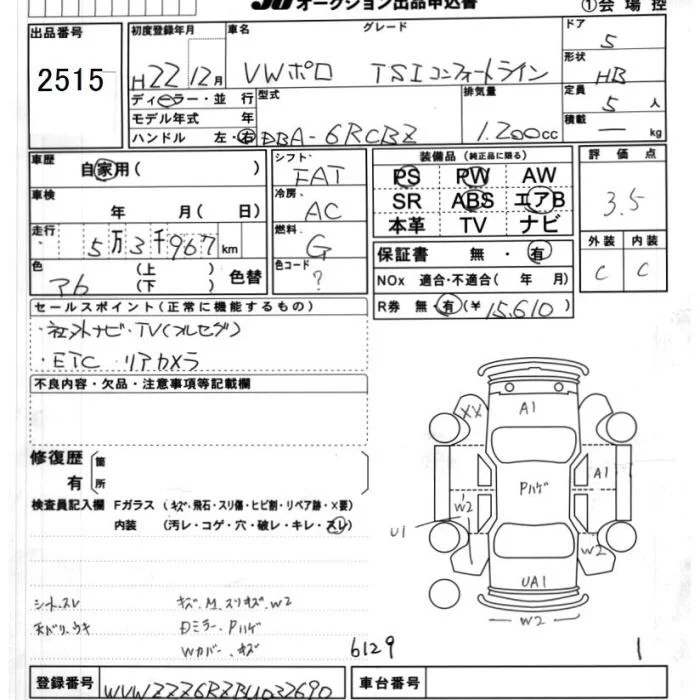 JU オークション出品申込書 ①会場控
出品番号 2515
初度登録年月 H22 12月
車名 グレード VWポロ TSIコンフォートライン
ドア 5
形状 HB
定員 5 人
積載 — kg
ディーラー・並行
モデル年式 年
ハンドル 左・右
型式 DBA-6RCBZ
排気量 1.200cc
車歴 自家用( )
車検 年 月( 日)
走行 5万3千967km
色 アカ (上) (下) 色替
シフト FAT
冷房 AC
燃料 G
色コード ?
装備品 (純正品に限る)
PS PW AW
SR ABS エアB
本革 TV ナビ
保証書 無・有
NOx 適合・不適合( 年 月)
R券 無・有(¥ 15,610)
評価点 3.5
外装 内装
C C
セールスポイント(正常に機能するもの)
・社外ナビ・TV(フルセグ)
・ETC リアカメラ
不良内容・欠品・注意事項等記載欄
修復歴 有 (箇所)
検査員記入欄 Fガラス (キズ・飛石・スリ傷・ヒビ割・リペア跡・X要)
内装 (汚レ・コゲ・穴・破レ・キレ・スレ)
XX A1
Pハゲ A1
W2 U1 W2
UA1
W2
シートスレ キズ.M.スリキズ.W2
天バリ.ウキ Dミラー.Pハゲ
Wカバー.キズ 6129 1
登録番号 WVWZZZ6RZBU032690 車台番号